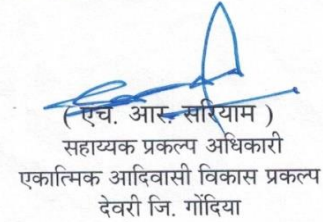 ( एच. आर. सरियाम )
सहाय्यक प्रकल्प अधिकारी
एकात्मिक आदिवासी विकास प्रकल्प
देवरी जि. गोंदिया